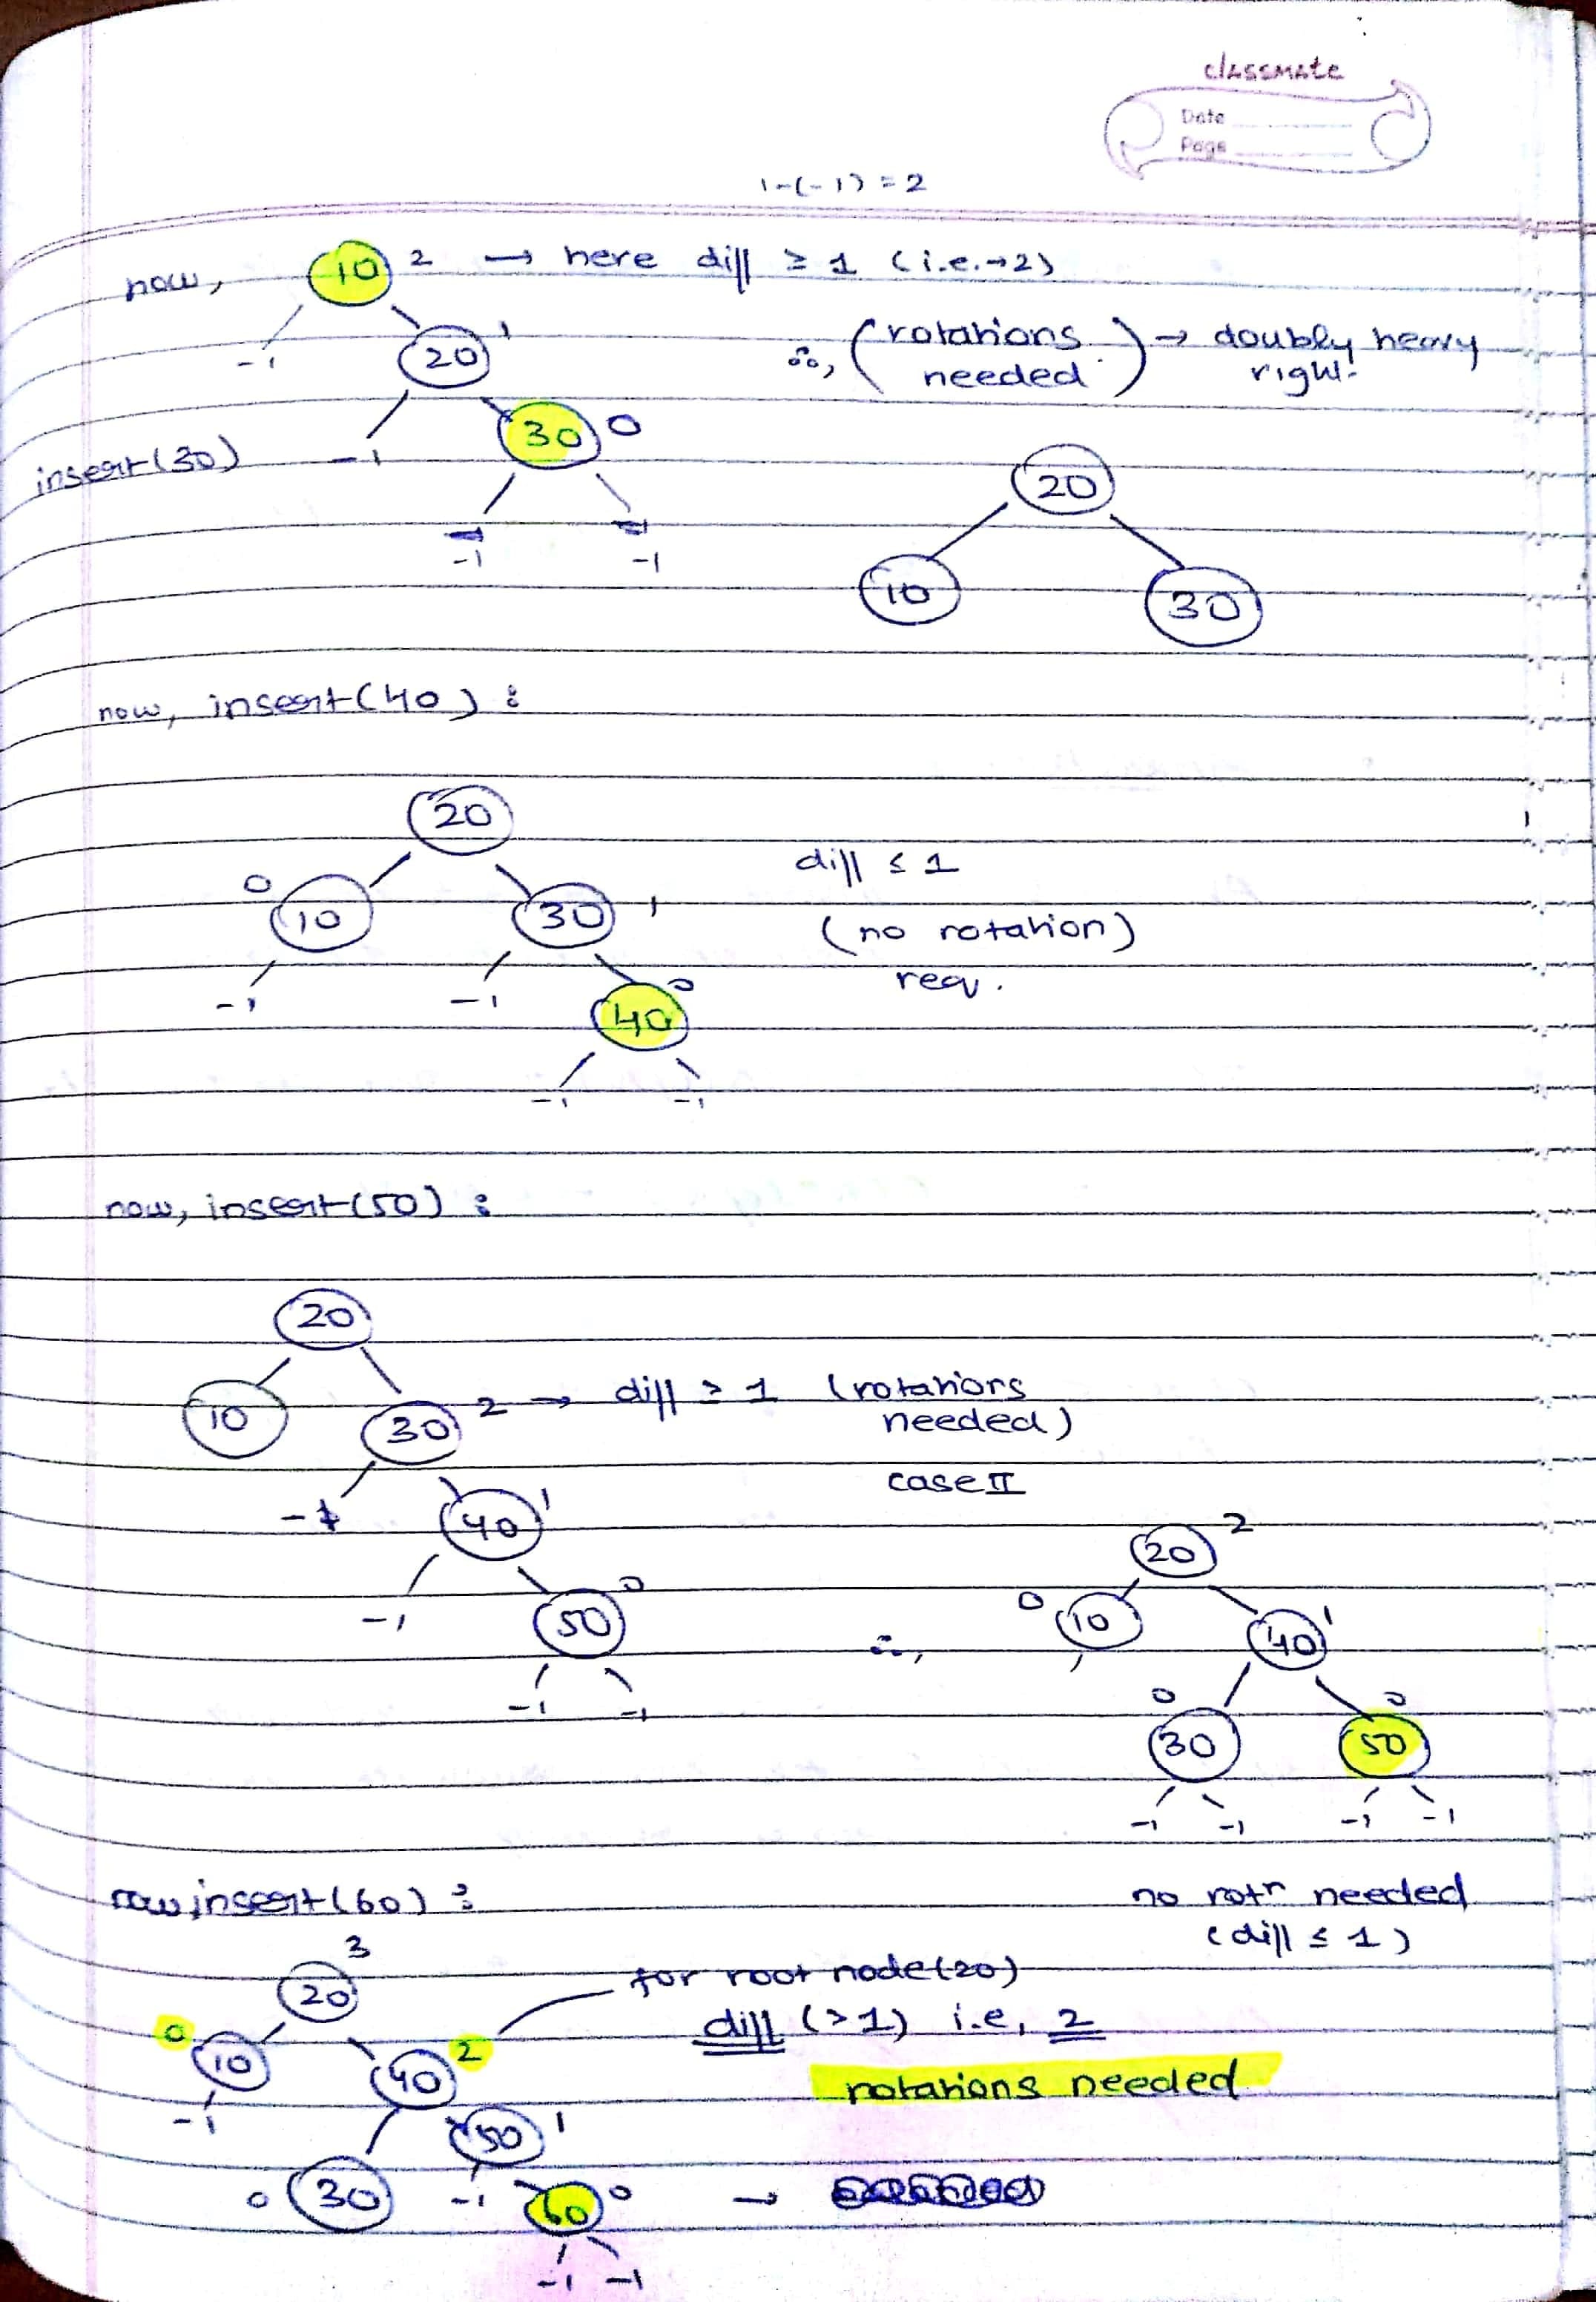 classmate
Date
Page
1-(-1) = 2
now, 10 2 → here diff ≥ 1 (i.e. → 2)
-1 20 1 ∴, (rotations needed) → doubly heavy right.
insert(30) -1 30 0
-1 -1
20
10 30
now, insert(40) :
20
diff ≤ 1
0 10 30 1
(no rotation)
req.
-1 -1 40 0
-1 -1
now, insert(50) :
20
10 30 2 → diff > 1 (rotations
needed)
case II
-1 40 1
20 2
-1 50 0
∴, 0 10 40 1
-1 -1
0 30 50 0
-1 -1 -1 -1
no rotn needed
(diff ≤ 1)
now, insert(60) :
20 3
for root node(20)
diff (>1) i.e, 2
0 10 40 2
rotations needed
-1 50 1
0 30 -1 60 0 →
-1 -1